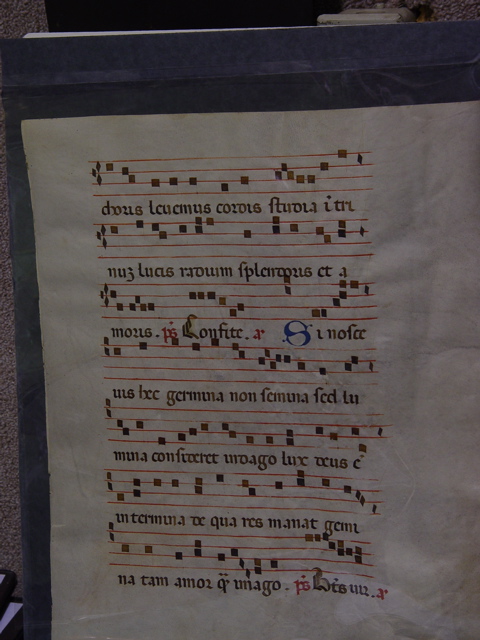 choris leuemus cordis studia i tri
nuz lucis radium splendoris et a
moris . ps Confite . a Si nosce
uis hec germina non semina sed lu
mina consideret uirago lux deus e
intermina de qua res manat gemi
na tam amor q ymago . ps Bts uir . a